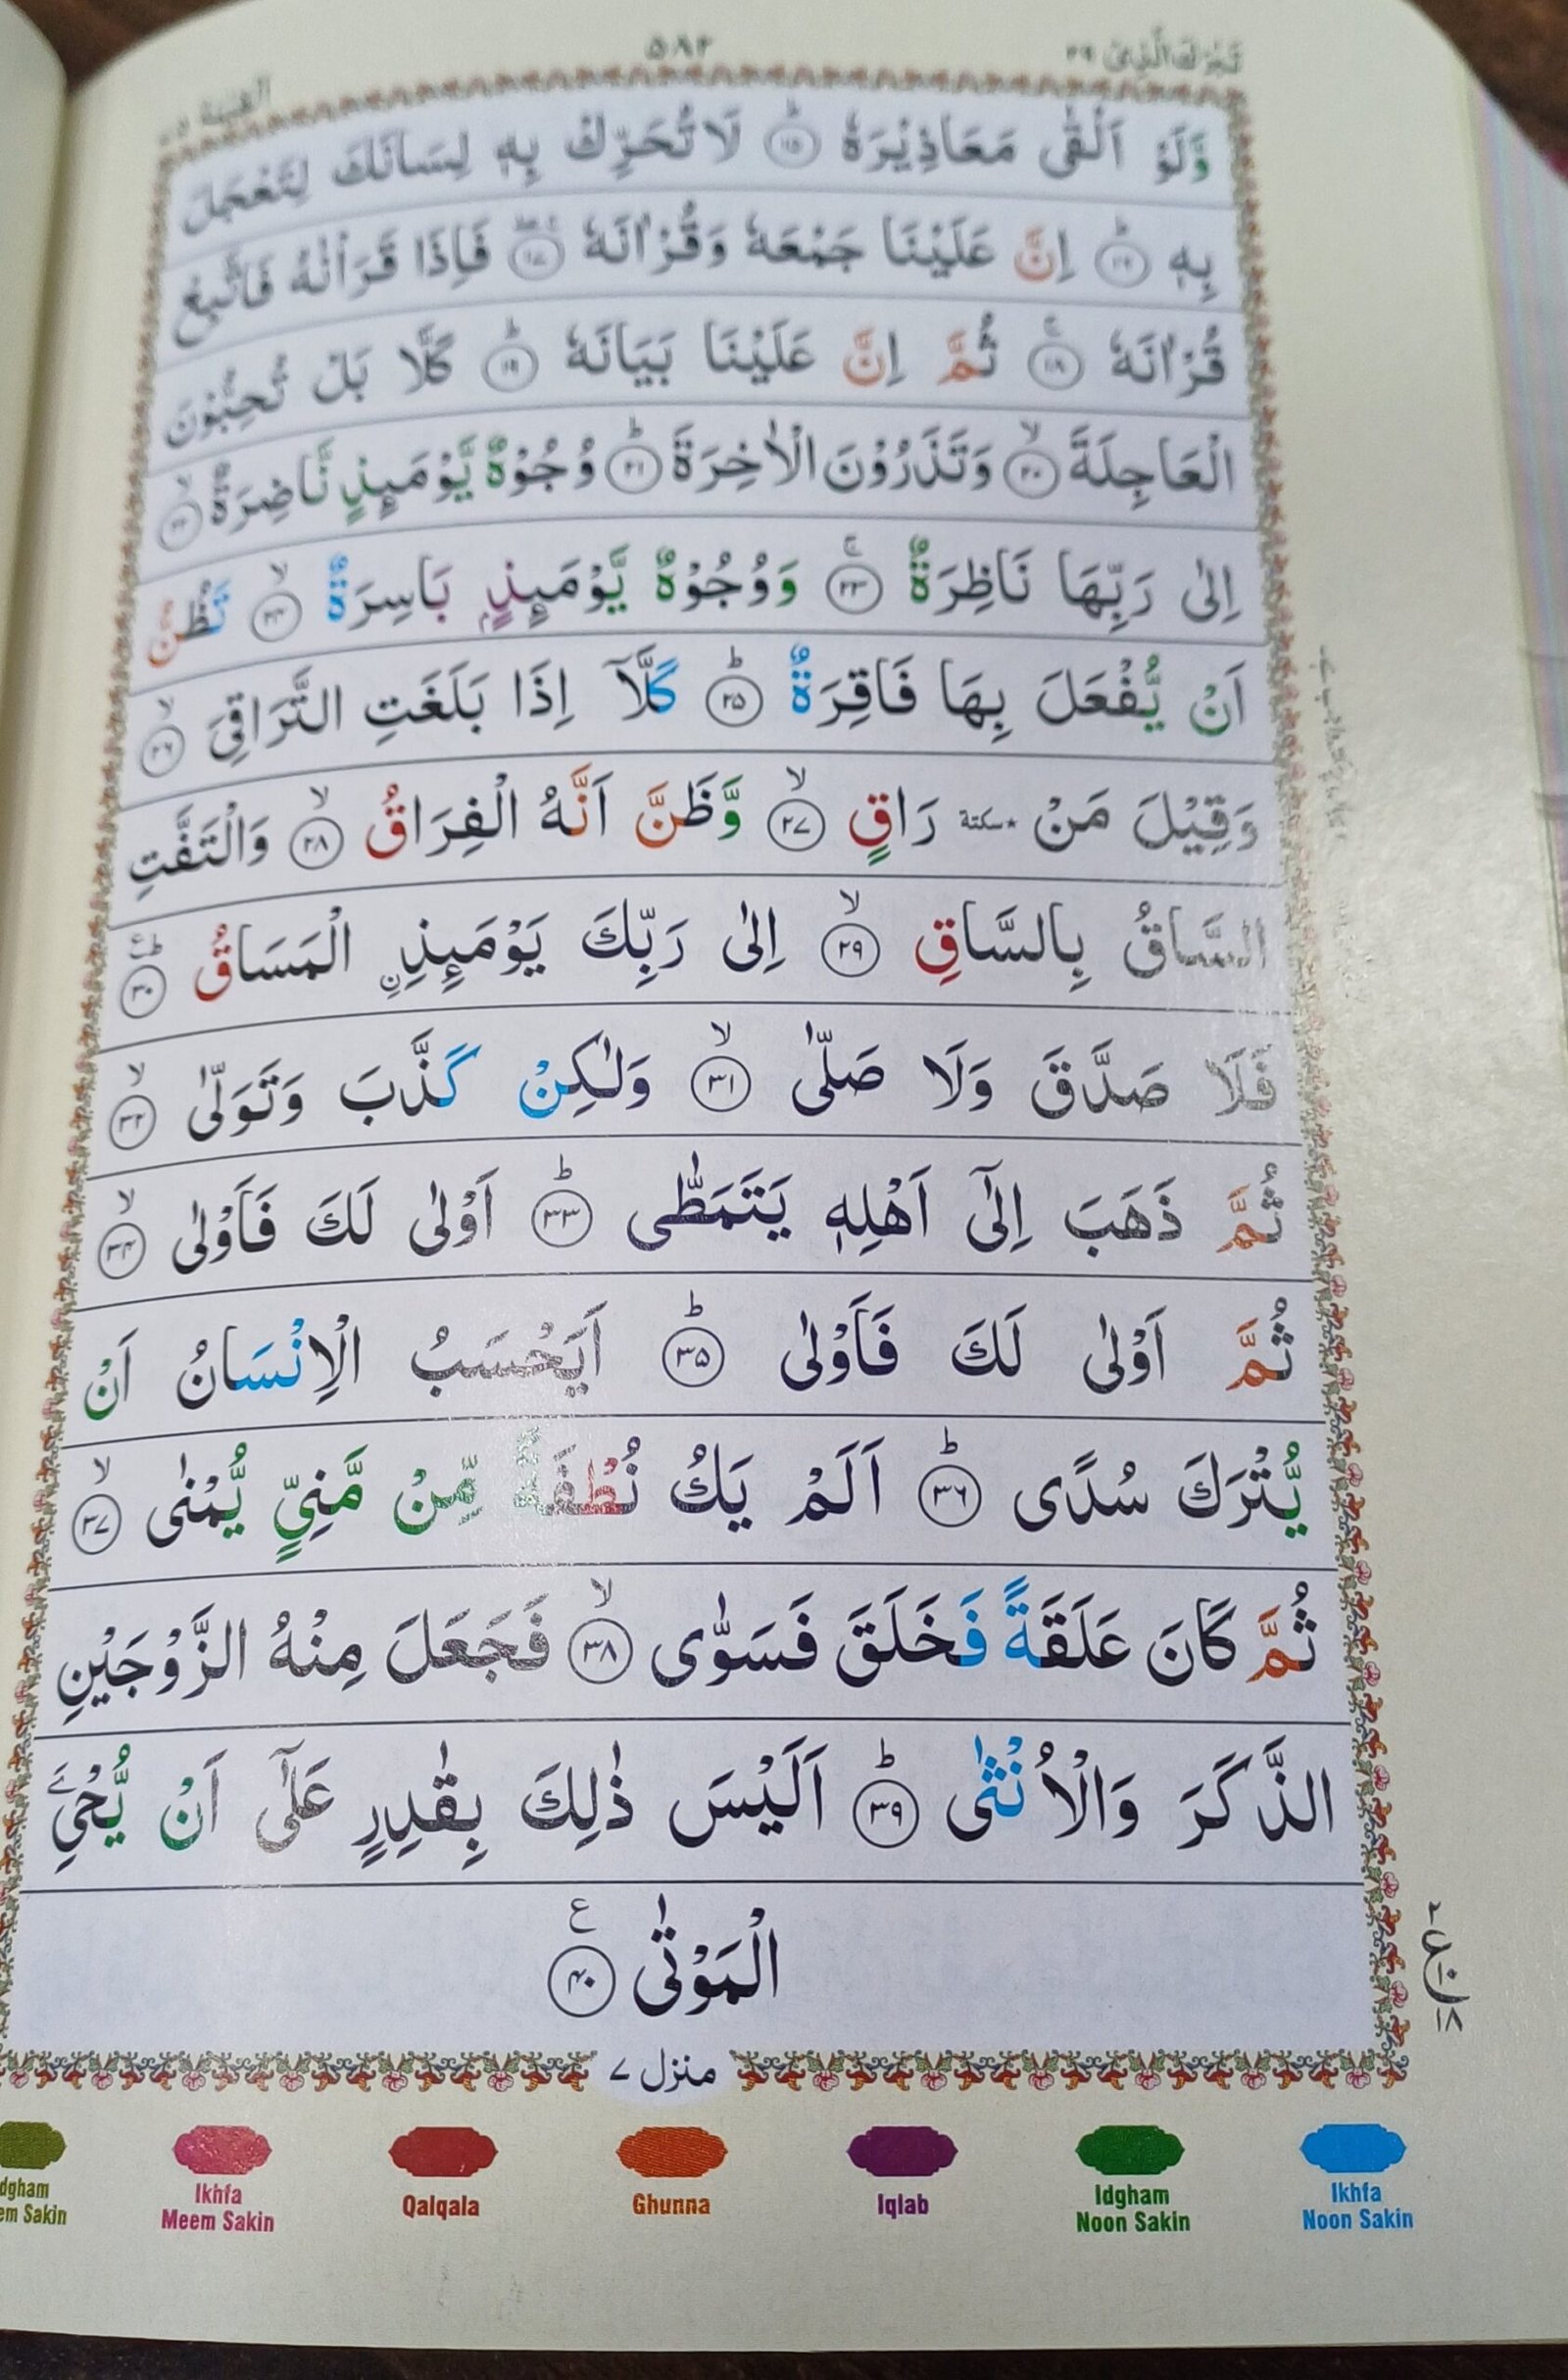 تَبٰرَكَ الَّذِىْ ٢٩
٥٨٢
الْقِيٰمَة ٧٥
وَّلَوْ اَلْقٰى مَعَاذِيْرَهٗ ؕ ﴿۱۵﴾ لَا تُحَرِّكْ بِهٖ لِسَانَكَ لِتَعْجَلَ
بِهٖ ؕ ﴿۱۶﴾ اِنَّ عَلَيْنَا جَمْعَهٗ وَقُرْاٰنَهٗ ﴿۱۷﴾ فَاِذَا قَرَاْنٰهُ فَاتَّبِعْ
قُرْاٰنَهٗ ۚ ﴿۱۸﴾ ثُمَّ اِنَّ عَلَيْنَا بَيَانَهٗ ؕ ﴿۱۹﴾ كَلَّا بَلْ تُحِبُّوْنَ
الْعَاجِلَةَ ۙ ﴿۲۰﴾ وَتَذَرُوْنَ الْاٰخِرَةَ ؕ ﴿۲۱﴾ وُجُوْهٌ يَّوْمَىِٕذٍ نَّاضِرَةٌ ۙ ﴿۲۲﴾
اِلٰى رَبِّهَا نَاظِرَةٌ ۚ ﴿۲۳﴾ وَوُجُوْهٌ يَّوْمَىِٕذٍۭ بَاسِرَةٌ ۙ ﴿۲۴﴾ تَظُنُّ
اَنْ يُّفْعَلَ بِهَا فَاقِرَةٌ ؕ ﴿۲۵﴾ كَلَّاۤ اِذَا بَلَغَتِ التَّرَاقِىَ ۙ ﴿۲۶﴾
وَقِيْلَ مَنْ ٚ سكتة رَاقٍ ۙ ﴿۲۷﴾ وَّظَنَّ اَنَّهُ الْفِرَاقُ ۙ ﴿۲۸﴾ وَالْتَفَّتِ
السَّاقُ بِالسَّاقِ ۙ ﴿۲۹﴾ اِلٰى رَبِّكَ يَوْمَىِٕذِ ࣙالْمَسَاقُ ؕ ﴿۳۰﴾
فَلَا صَدَّقَ وَلَا صَلّٰى ۙ ﴿۳۱﴾ وَلٰكِنْ كَذَّبَ وَتَوَلّٰى ۙ ﴿۳۲﴾
ثُمَّ ذَهَبَ اِلٰٓى اَهْلِهٖ يَتَمَطّٰى ؕ ﴿۳۳﴾ اَوْلٰى لَكَ فَاَوْلٰى ۙ ﴿۳۴﴾
ثُمَّ اَوْلٰى لَكَ فَاَوْلٰى ؕ ﴿۳۵﴾ اَيَحْسَبُ الْاِنْسَانُ اَنْ
يُّتْرَكَ سُدًى ؕ ﴿۳۶﴾ اَلَمْ يَكُ نُطْفَةً مِّنْ مَّنِىٍّ يُّمْنٰى ۙ ﴿۳۷﴾
ثُمَّ كَانَ عَلَقَةً فَخَلَقَ فَسَوّٰى ۙ ﴿۳۸﴾ فَجَعَلَ مِنْهُ الزَّوْجَيْنِ
الذَّكَرَ وَالْاُنْثٰى ؕ ﴿۳۹﴾ اَلَيْسَ ذٰلِكَ بِقٰدِرٍ عَلٰٓى اَنْ يُّحْۦِىَ
الْمَوْتٰى ع ﴿۴۰﴾
منزل ۷
Ikhfa Noon Sakin
Idgham Noon Sakin
Iqlab
Ghunna
Qalqala
Ikhfa Meem Sakin
dgham em Sakin